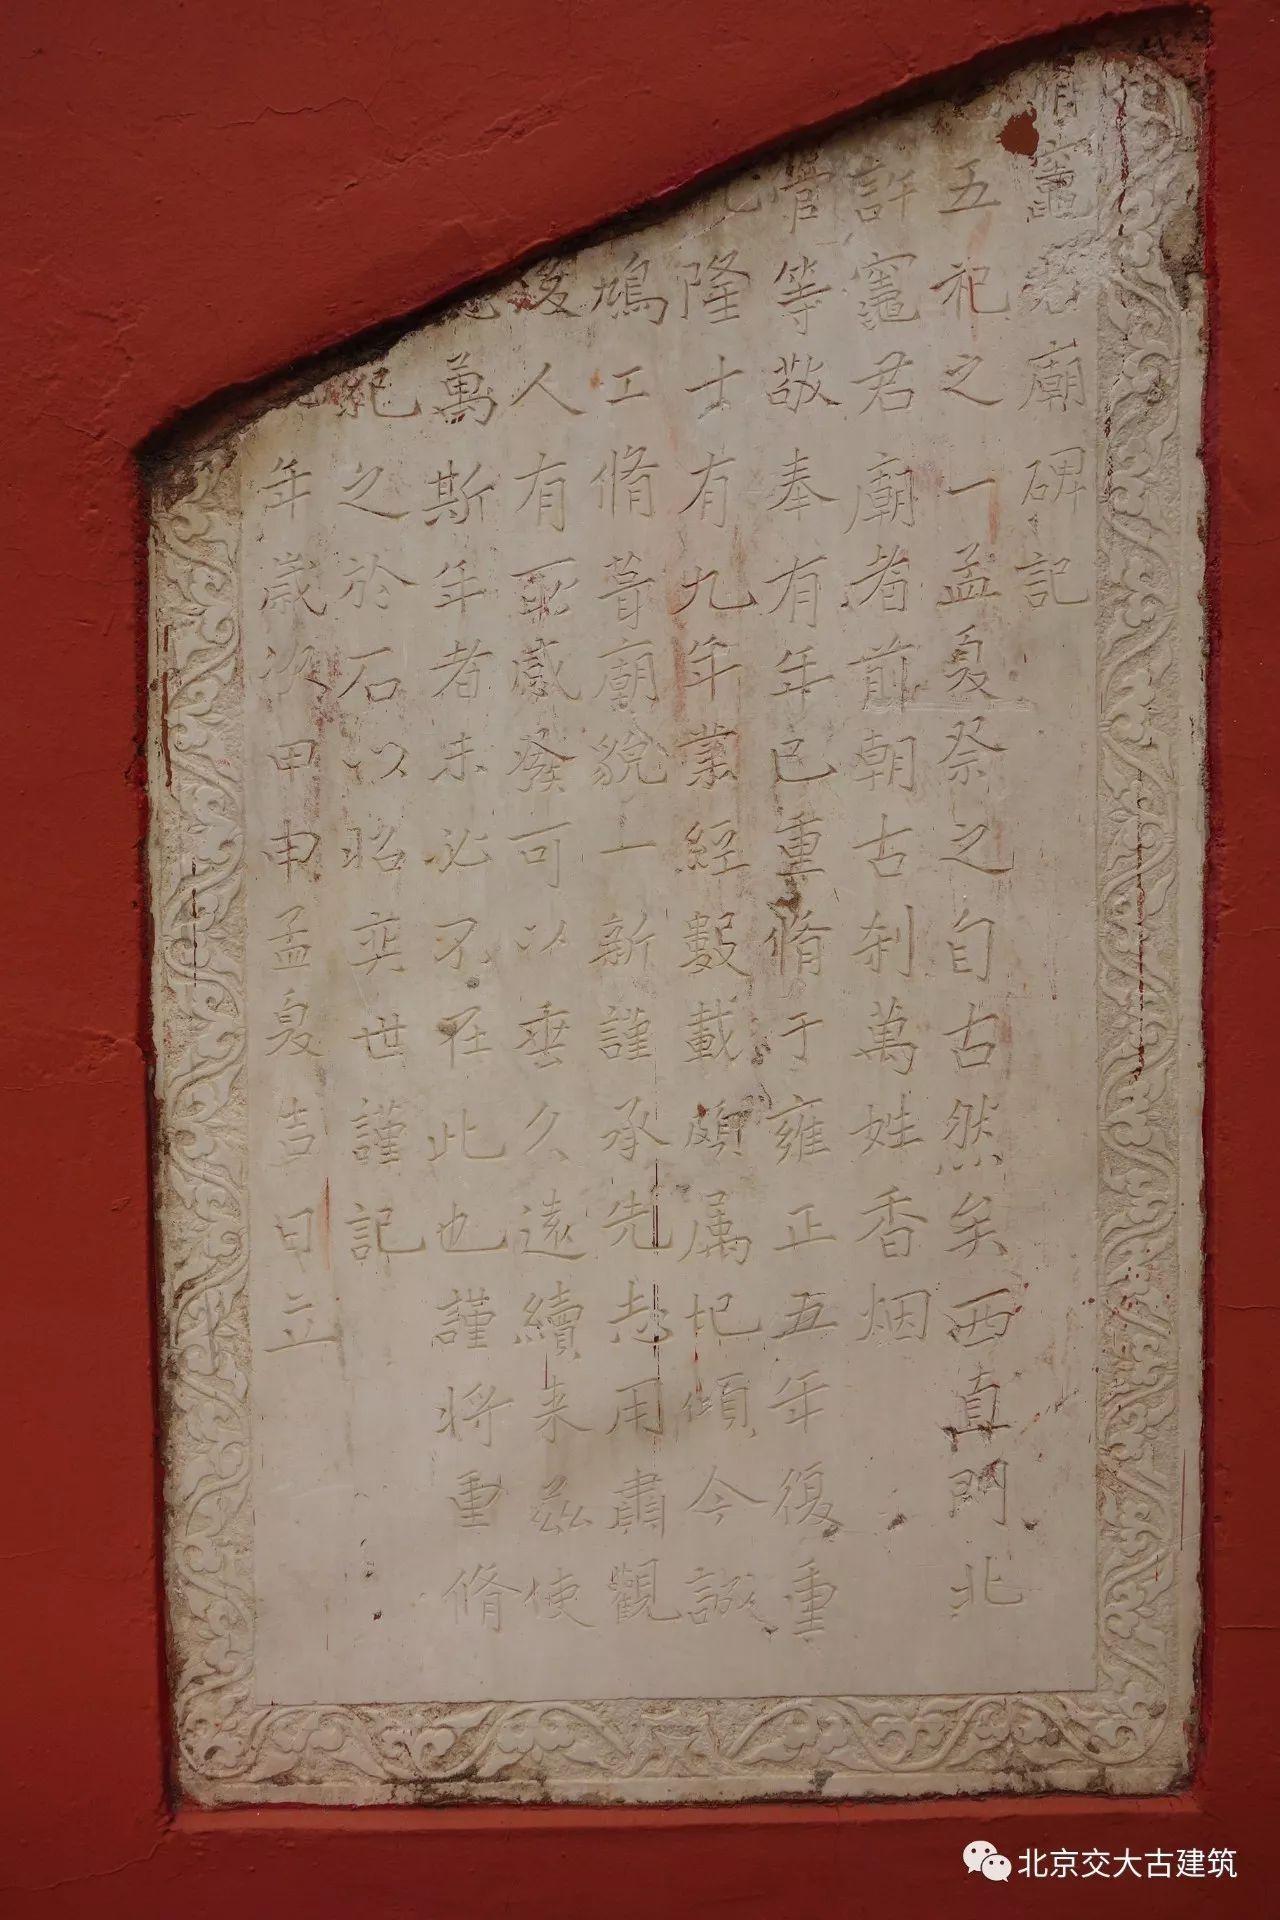 竈君廟碑記
五祀之一孟夏祭之自古然矣西直門北
許竈君廟者前朝古刹萬姓香烟
官等敬奉有年已重脩于雍正五年復重
隆士有九年業經數載頗属圯傾今誠
鳩工脩葺廟貌一新謹承先志用肅觀
後人有所感發可以垂久遠續来兹使
萬斯年者未必不在此也謹將重脩
紀之於石以昭奕世謹記
年歲次甲申孟夏吉日立
北京交大古建筑